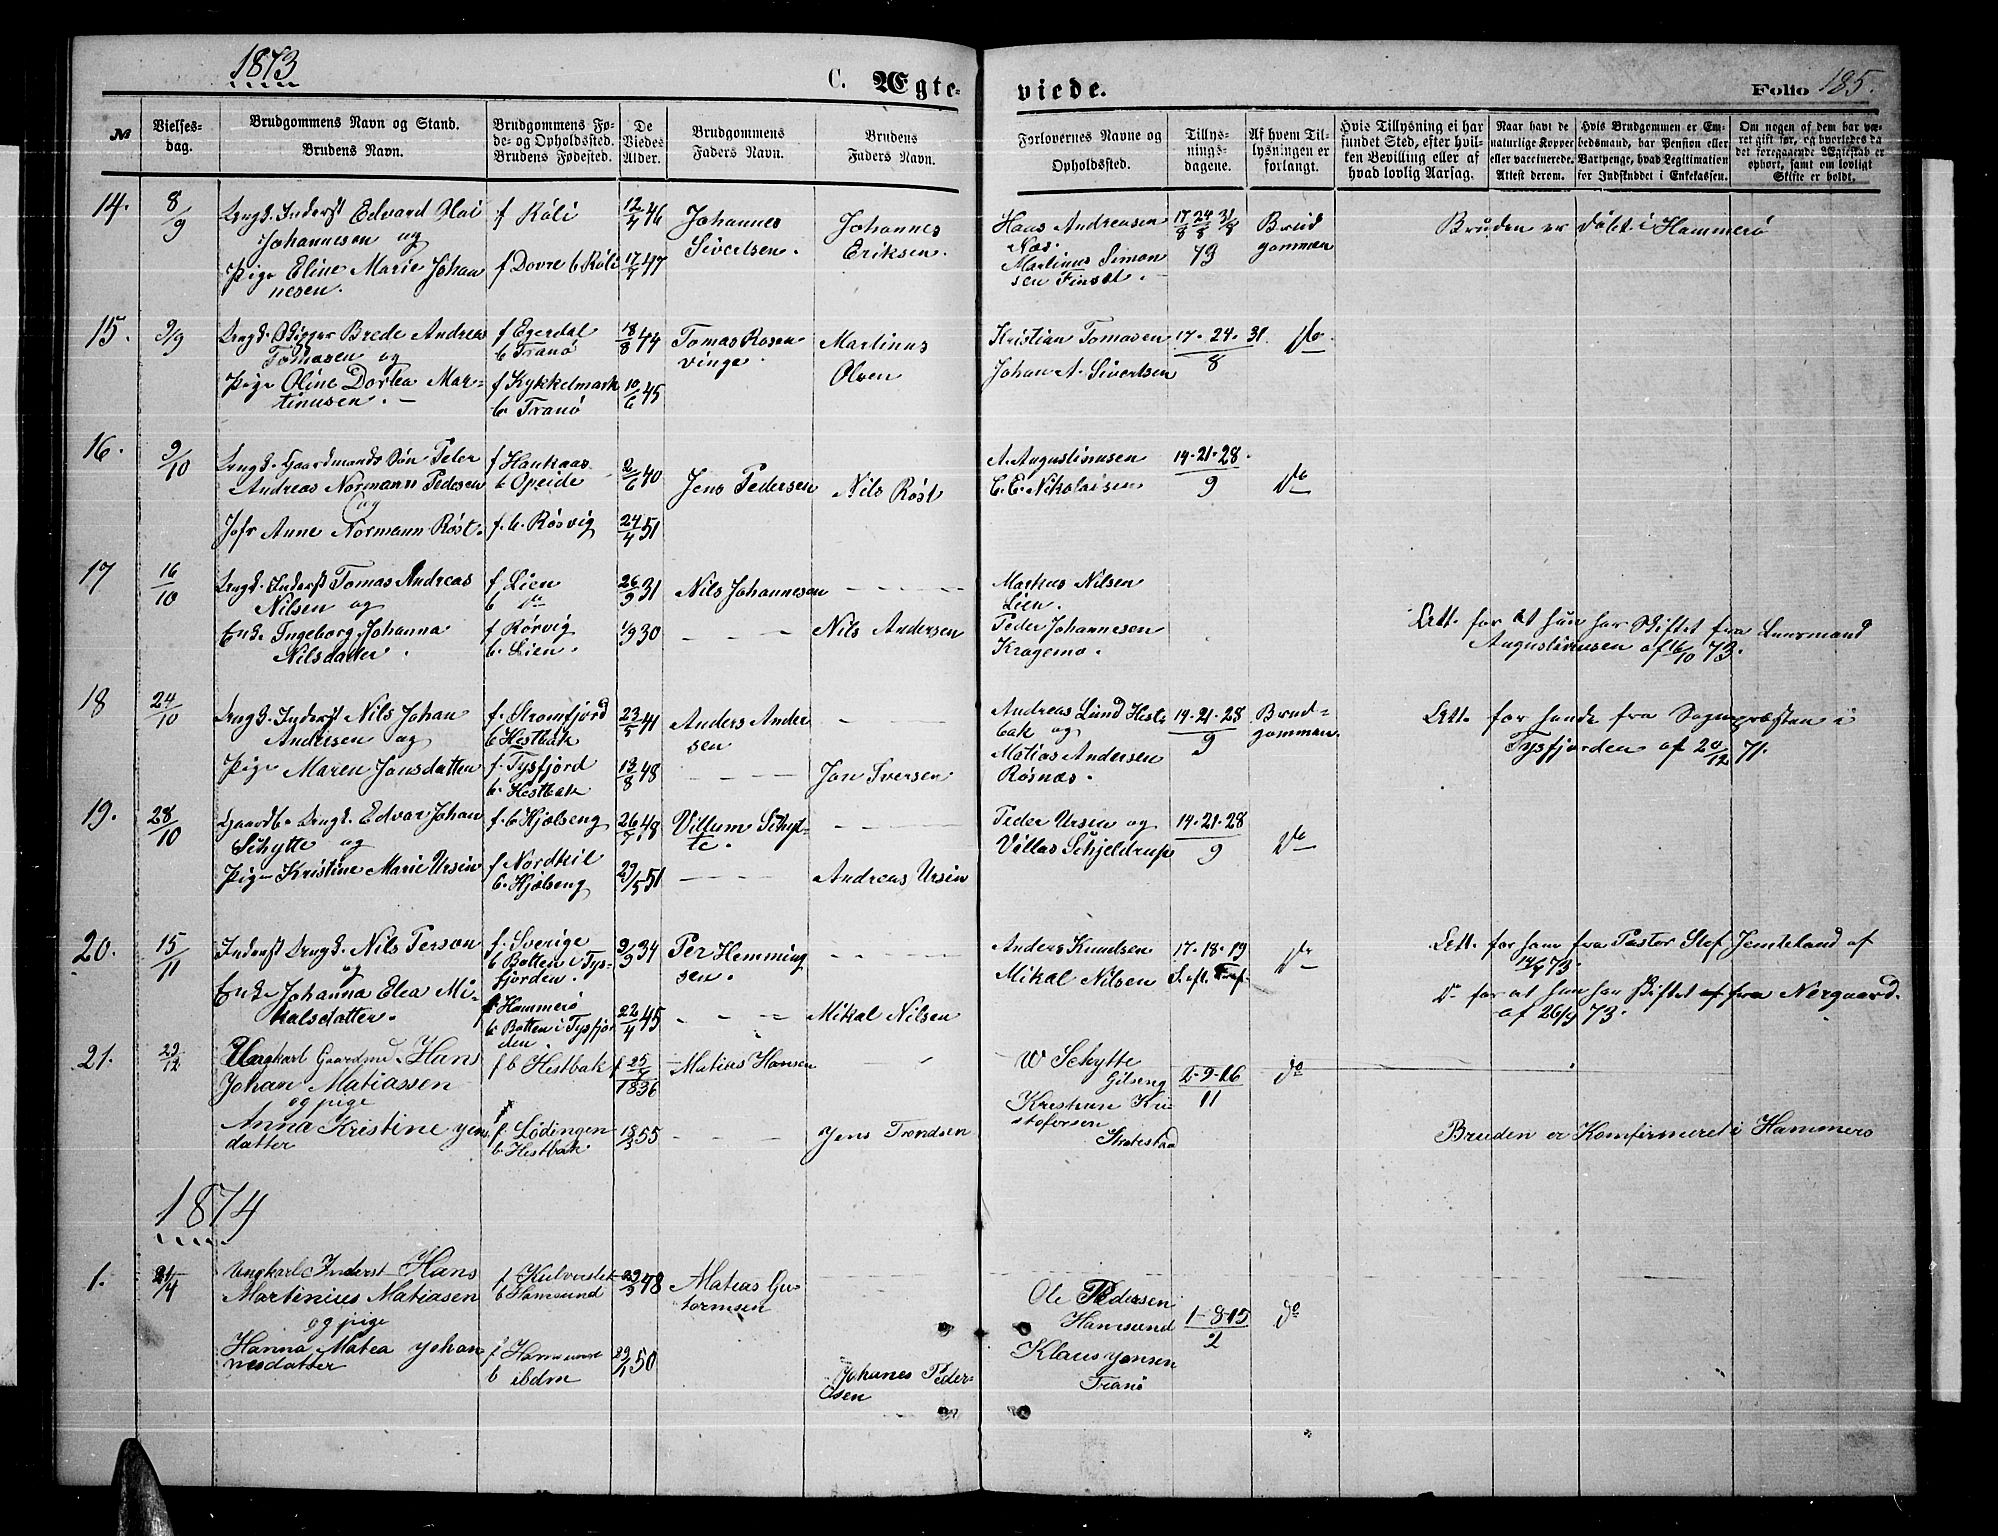 1873
C. Ægteviede.
Folio 185.
№
Vielsesdag.
Brudgommens Navn og Stand.
Brudens Navn.
Brudgommens Føde- og Opholdsted.
Brudens Fødested.
De Viedes Alder.
Brudgommens Faders Navn.
Brudens Faders Navn.
Forlovernes Navne og Opholdsted.
Tillysningsdagene.
Af hvem Tillysningen er forlangt.
Hvis Tillysning ei har fundet Sted, efter hvilken Bevilling eller af hvad lovlig Aarsag.
Naar havt de naturlige Kopper eller vaccinerede. Attest derom.
Hvis Brudgommen er Embedsmand, har Pension eller Vartpenge, hvad Legitimation for Indskuddet i Enkekassen.
Om nogen af dem har været gift før, og hvorledes da det foregaaende Ægteskab er ophørt, samt om lovligt Skifte er holdt.
14. 8/9
Ungk. Inderst Edvard Olai
Johannesen og
Pige Eline Marie Johan
nesen.
f Røli
f Dovre b Røli
12/4 46
17/7 47
Johannes
Sivertsen.
Johannes
Eriksen.
Hans Andreasen
Næs.
Martinus Simon
sen Finset.
17/8 24/8 31/8
73
Brud
gommen
Bruden er døbt i Hammerø
15. 9/9
Ungk. Skipper Brede Andreas
Tomasen og
Pige Oline Dortea Mar-
tinusen. -
f Egerdal
b Tranø
f Kykkelmark
b Tranø
18/8 44
10/6 45
Tomas Rosen
vinge.
Martinus
Olsen
Kristian Tomasen
Johan A. Sivertsen
17. 24. 31.
8
Do
16. 9/10
Ungk. Gaardmands Søn Peter
Andreas Normann Pedersen
og
Jofr Anne Normann Røst.
f Haukaas
b Opeide
f. b. Røsvig
2/6 40
24/4 51
Jens Pedersen
Nils Røst
A. Augustinusen
C. E. Nikolaisen
14. 21. 28.
9
Do
17 16/10
Ungk. Inderst Tomas Andreas
Nilsen og
Enke Ingeborg Johanna
Nilsdatter.
f Lien
b do
f Rørvig
b. Lien.
26/9 31
1/9 30
Nils Johannesen
Nils Andersen
Markus Nilsen
Lien.
Peder Johannesen
Kragemo.
Att. for at hun har Skiftet fra Lensmand
Augustinusen af 16/10 73.
18 24/10
Ungk. Inderst Nils Johan
Andersen og
Pige Maren Jonsdatter
f. Stromfjord
b Hestbak
f. Tysfjord
b. Hestbak
23/5 41
13/8 48
Anders Ander
sen
Jon Iversen
Andreas Lund Hest
bak og
Matias Andersen
Røsnæs.
14. 21. 28
9
Brud-
gommen.
Att. for hende fra Sognepræsten i
Tysfjorden af 20/12 71.
19. 28/10
Gaardb. Ungk. Edvar Johan
Schytte og
Pige Kristine Marie Ursin
f. b Hjelseng
f Nordkil
b. Hjelseng
26/7 48
29/5 51
Villum Schyt-
te.
Andreas Ursin
Peder Ursin og
Villas Schjeldrup
14. 21. 28
9
Do
20. 15/11
Inderst Ungk. Nils Person
og
Enke Johanna Elea Mi-
kalsdatter.
f. Sverige
b Botten i Tys-
fjorden.
f Hammerø
b Botten i Tysfjor
den.
9/9 34
22/4 45
Per Hemming
sen.
Mikal Nilsen
Anders Knudsen
Mikal Nilsen
17. 18. 19
S. eft. Tref.
Do
Att. for ham fra Pastor Stof Jemteland af
14/4 73.
Do for at hun har skiftet fra Nergaard.
af 26/9 73.
21. 29/12
Ungkarl Gaardmd. Hans
Johan Matiassen
og pige
Anna Kristine Jens
datter
f b Hestbak
f. Lødingen
b Hestbak
f 25/7 1836
18/3 55
Matias Hansen
Jens Trondsen
W Schytte
Gilseng
Kristian Kri-
stofersen
2-9-16
11
do
Bruden er Konfirmeret i Hammerø
1874
1. 21/4
Ungkarl Inderst Hans
Martinius Matiasen
og pige
Hanna Matea Johan
nesdatter
b Hamsund
f Hamsund
b ibdm
48
50
Matias Gu-
tormsen
Johanes Peder-
sen
Ole Pedersen
Hamsund
Klaus Jensen
Tranø
1-8-15
2
do